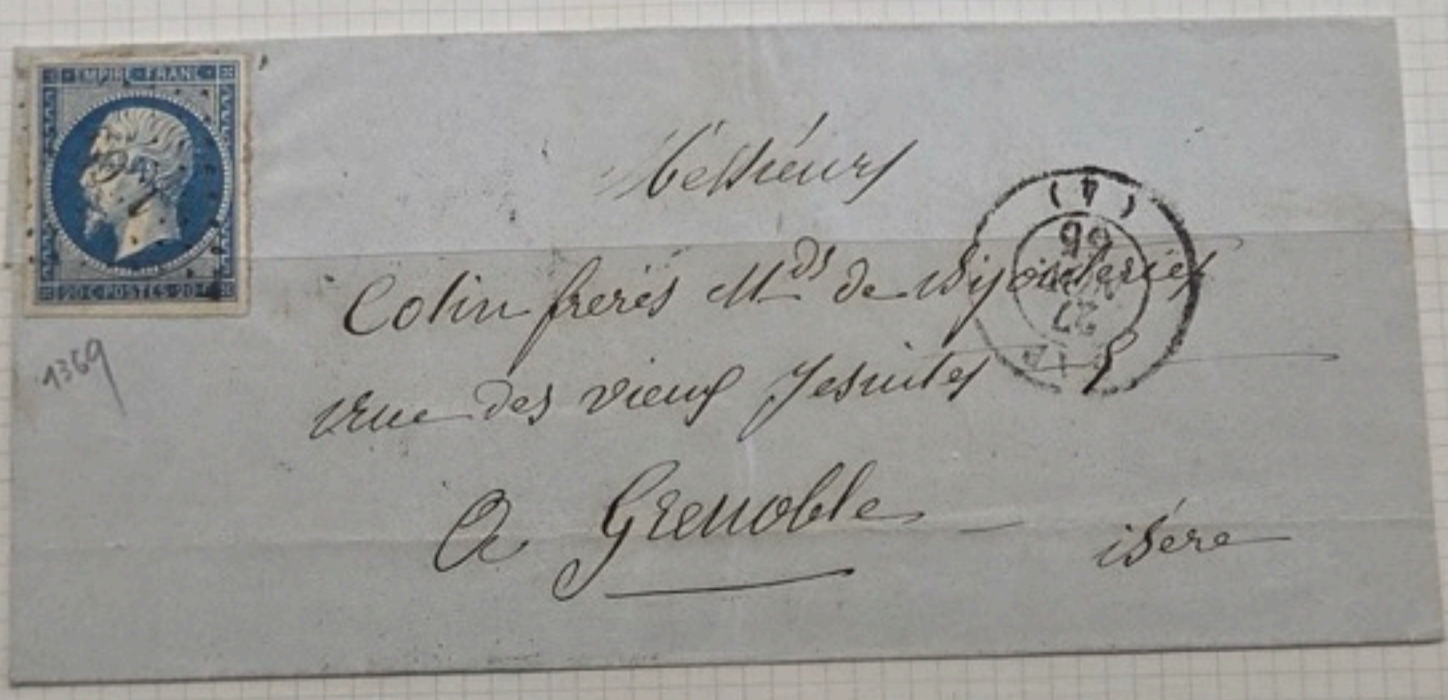 EMPIRE FRANC
20·C·POSTES·20·C
1369
Messieurs
Colin frerés Mds de Bijouteries
rue des vieux Jesuites 5
A Grenoble
isére
(4)
56
27